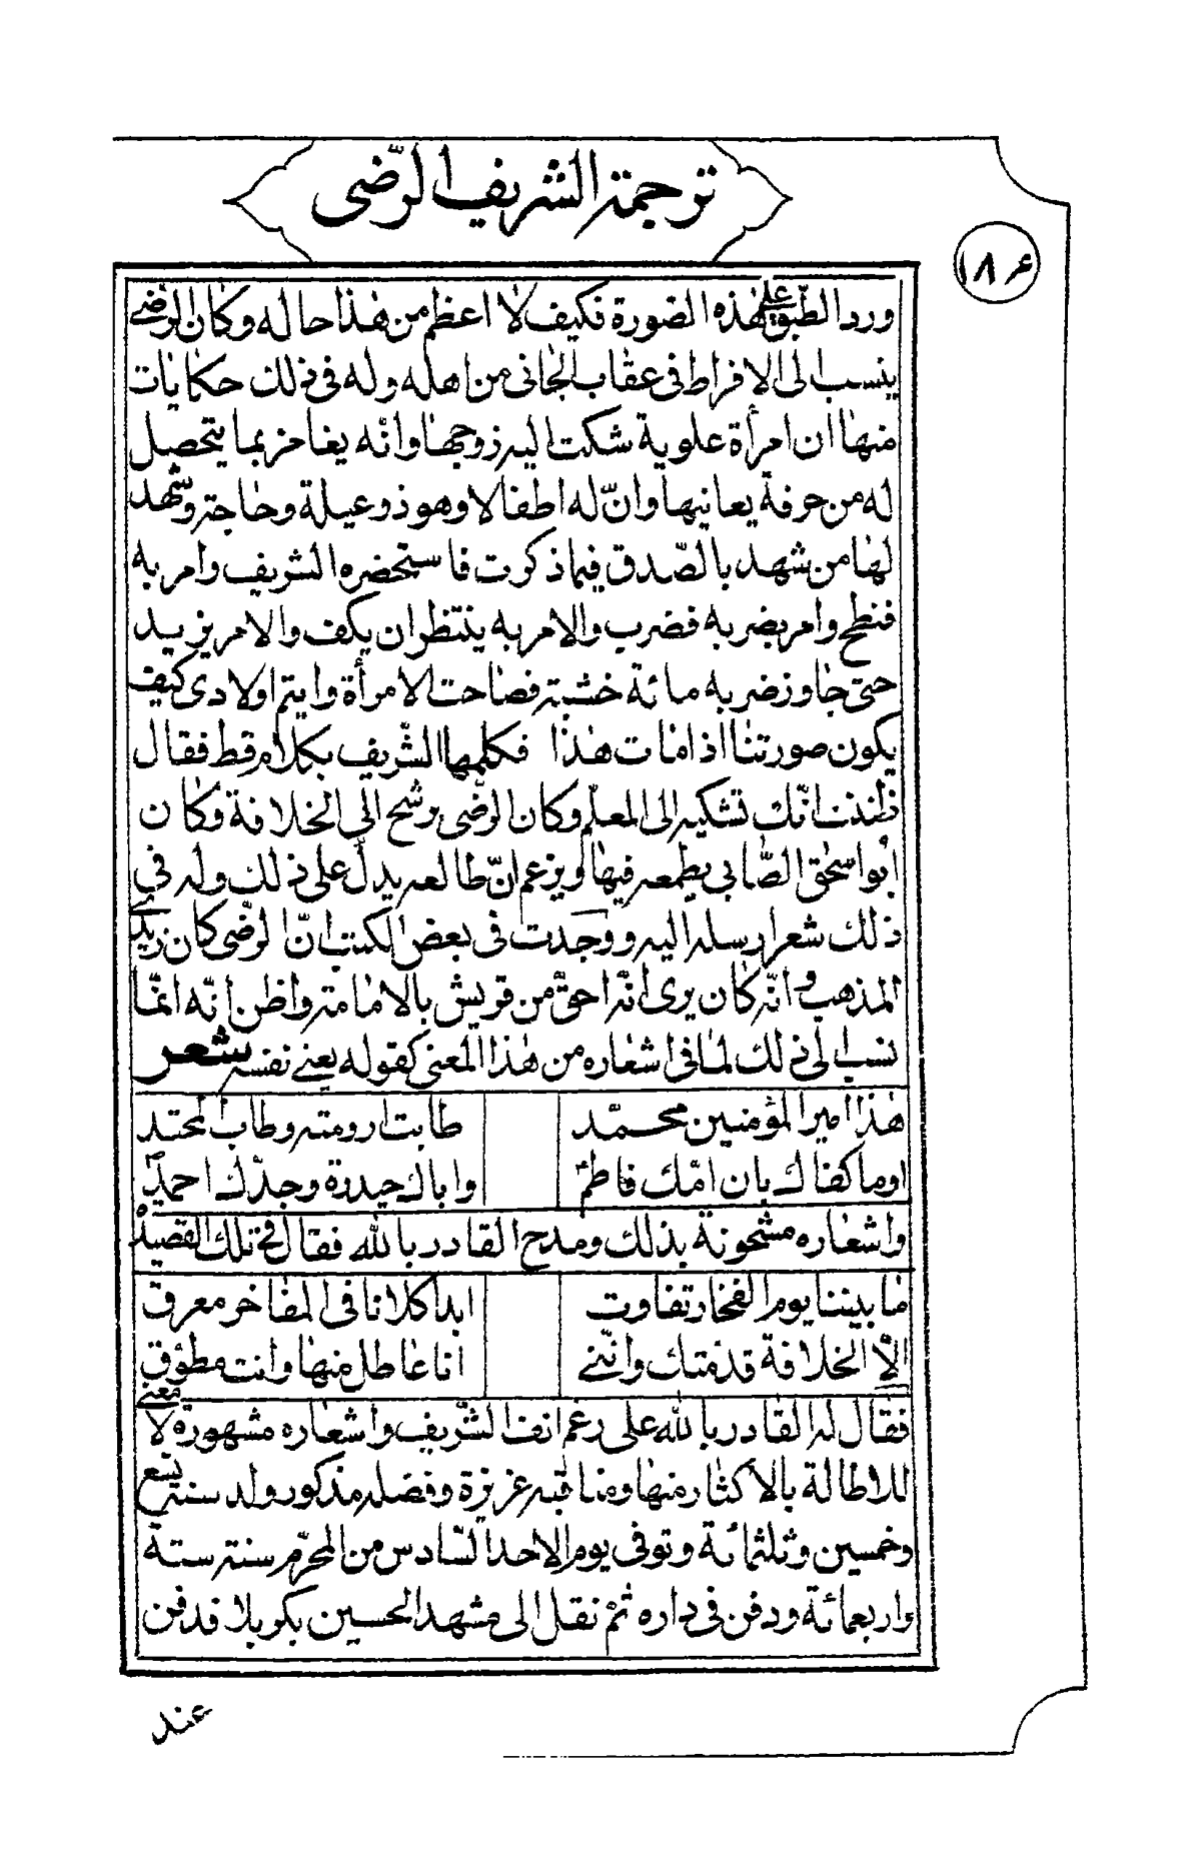 ترجمة الشريف الرّضى
١٨۶
ورد الطّبق على هٰذه الصّورة فكيف لا اعظم من هٰذا حاله وكان الرّضى
ينسب الى الافراط فى عقاب الجانى من اهله وله فى ذلك حكايات
منها ان امرأة علوية شكت اليه زوجها وانّه يغامز بما يتحصل
له من حرفة يعانيها وانّ له اطفالا وهو ذو عيلة وحاجة وشهد
لها من شهد بالصّدق فيما ذكرت فاستحضره الشريف وامر به
فنطح وامر بضربه فضرب والامر به ينتظر ان يكف والامر يزيد
حتى جاوز ضربه مائة خشبة فصاحت الامرأة وايتم اولادى كيف
يكون صورتنا اذا مات هٰذا فكلمها الشّريف بكلام قط فقال
ظننت انّك تشكيه الى المعلّم وكان الرّضى يرشح الى الخلافة وكان
ابو اسحٰق الصّابى يطمعه فيها ويزعم انّ طالعه يدلّ على ذلك وله فى
ذلك شعر ارسله اليه ووجدت فى بعض الكتب انّ الرّضى كان زيدى
المذهب وانّه كان يرى انّه احقّ من قريش بالامامة واظن انّه انّما
نسب الى ذلك لما فى اشعاره من هٰذا المعنى كقوله يعنى نفسه شعر
هٰذا امير المؤمنين محمّد طابت ارومته وطاب المحتد
او ما كفاك بان امّك فاطم واباك حيدرة وجدّك احمد
واشعاره مشحونة بذلك ومدح القادر بالله فقال فى تلك القصيدة
ما بيننا يوم الفخار تفاوت ابدا كلانا فى المفاخر معرق
الّا الخلافة قدمتك وانّنى انا عاطل منها وانت مطوّق
فقال له القادر بالله على رغم انف الشّريف واشعاره مشهورة لا معنى
للاطالة بالاكثار منها ومناقبه غزيزة وفضله مذكور ولد سنة تسع
وخمسين وثلثمائة وتوفى يوم الاحد السّادس من المحرّم سنة ستة
واربعمائة ودفن فى داره ثمّ نقل الى مشهد الحسين بكربلا فدفن
عند